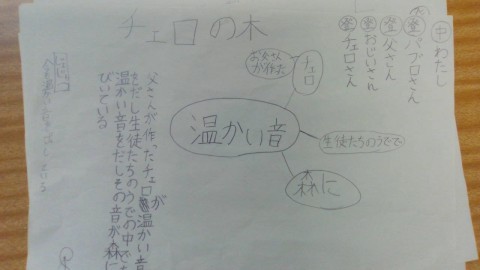 チェロの木
中 わたし
登 パブロさん
登 父さん
登 おじいさん
登 チェロさん
チェロ
お父さん
が作った
温かい音
生徒たちのうでで
森に
父さんが作ったチェロが温かい音
をだし生徒たちのうでの中でも
温かい音をだしその音が森に
ひびいている